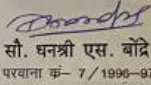 सौ. धनश्री एस. बोंद्रे
परवाना कं– 7 / 1996–97